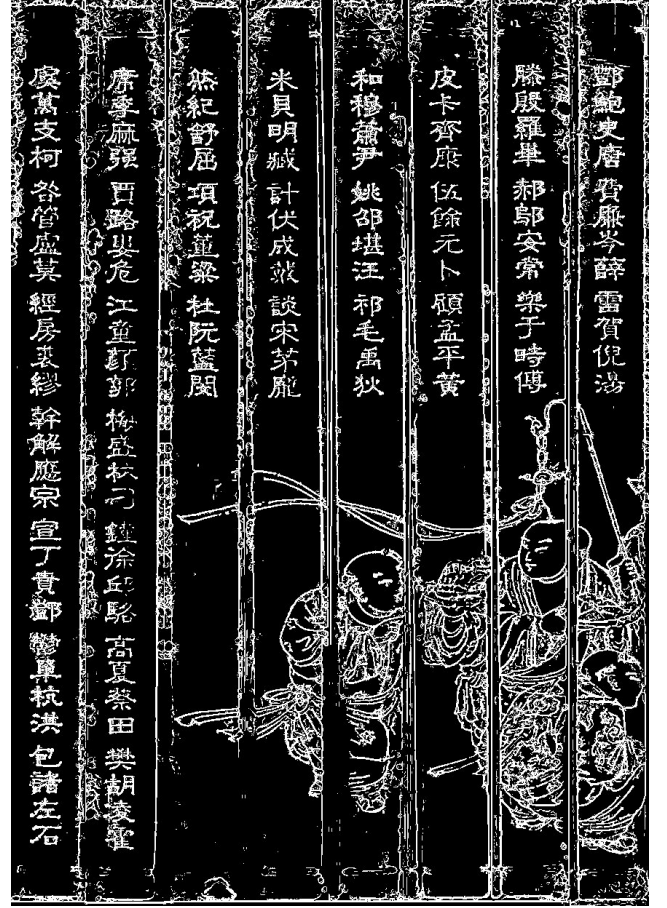 酆鮑史唐 費廉岑薛 雷賀倪湯
滕殷羅畢 郝鄔安常 樂于時傅
皮卡齊康 伍餘元卜 顧孟平黃
和穆蕭尹 姚邵堪汪 祁毛禹狄
米貝明臧 計伏成戴 談宋茅龐
熊紀舒屈 項祝董梁 杜阮藍閔
席季麻强 賈路婁危 江童顏郭 梅盛林刁 鐘徐邱駱 高夏蔡田 樊胡凌霍
虞萬支柯 昝管盧莫 經房裘繆 幹解應宗 宣丁賁鄧 鬱單杭洪 包諸左石